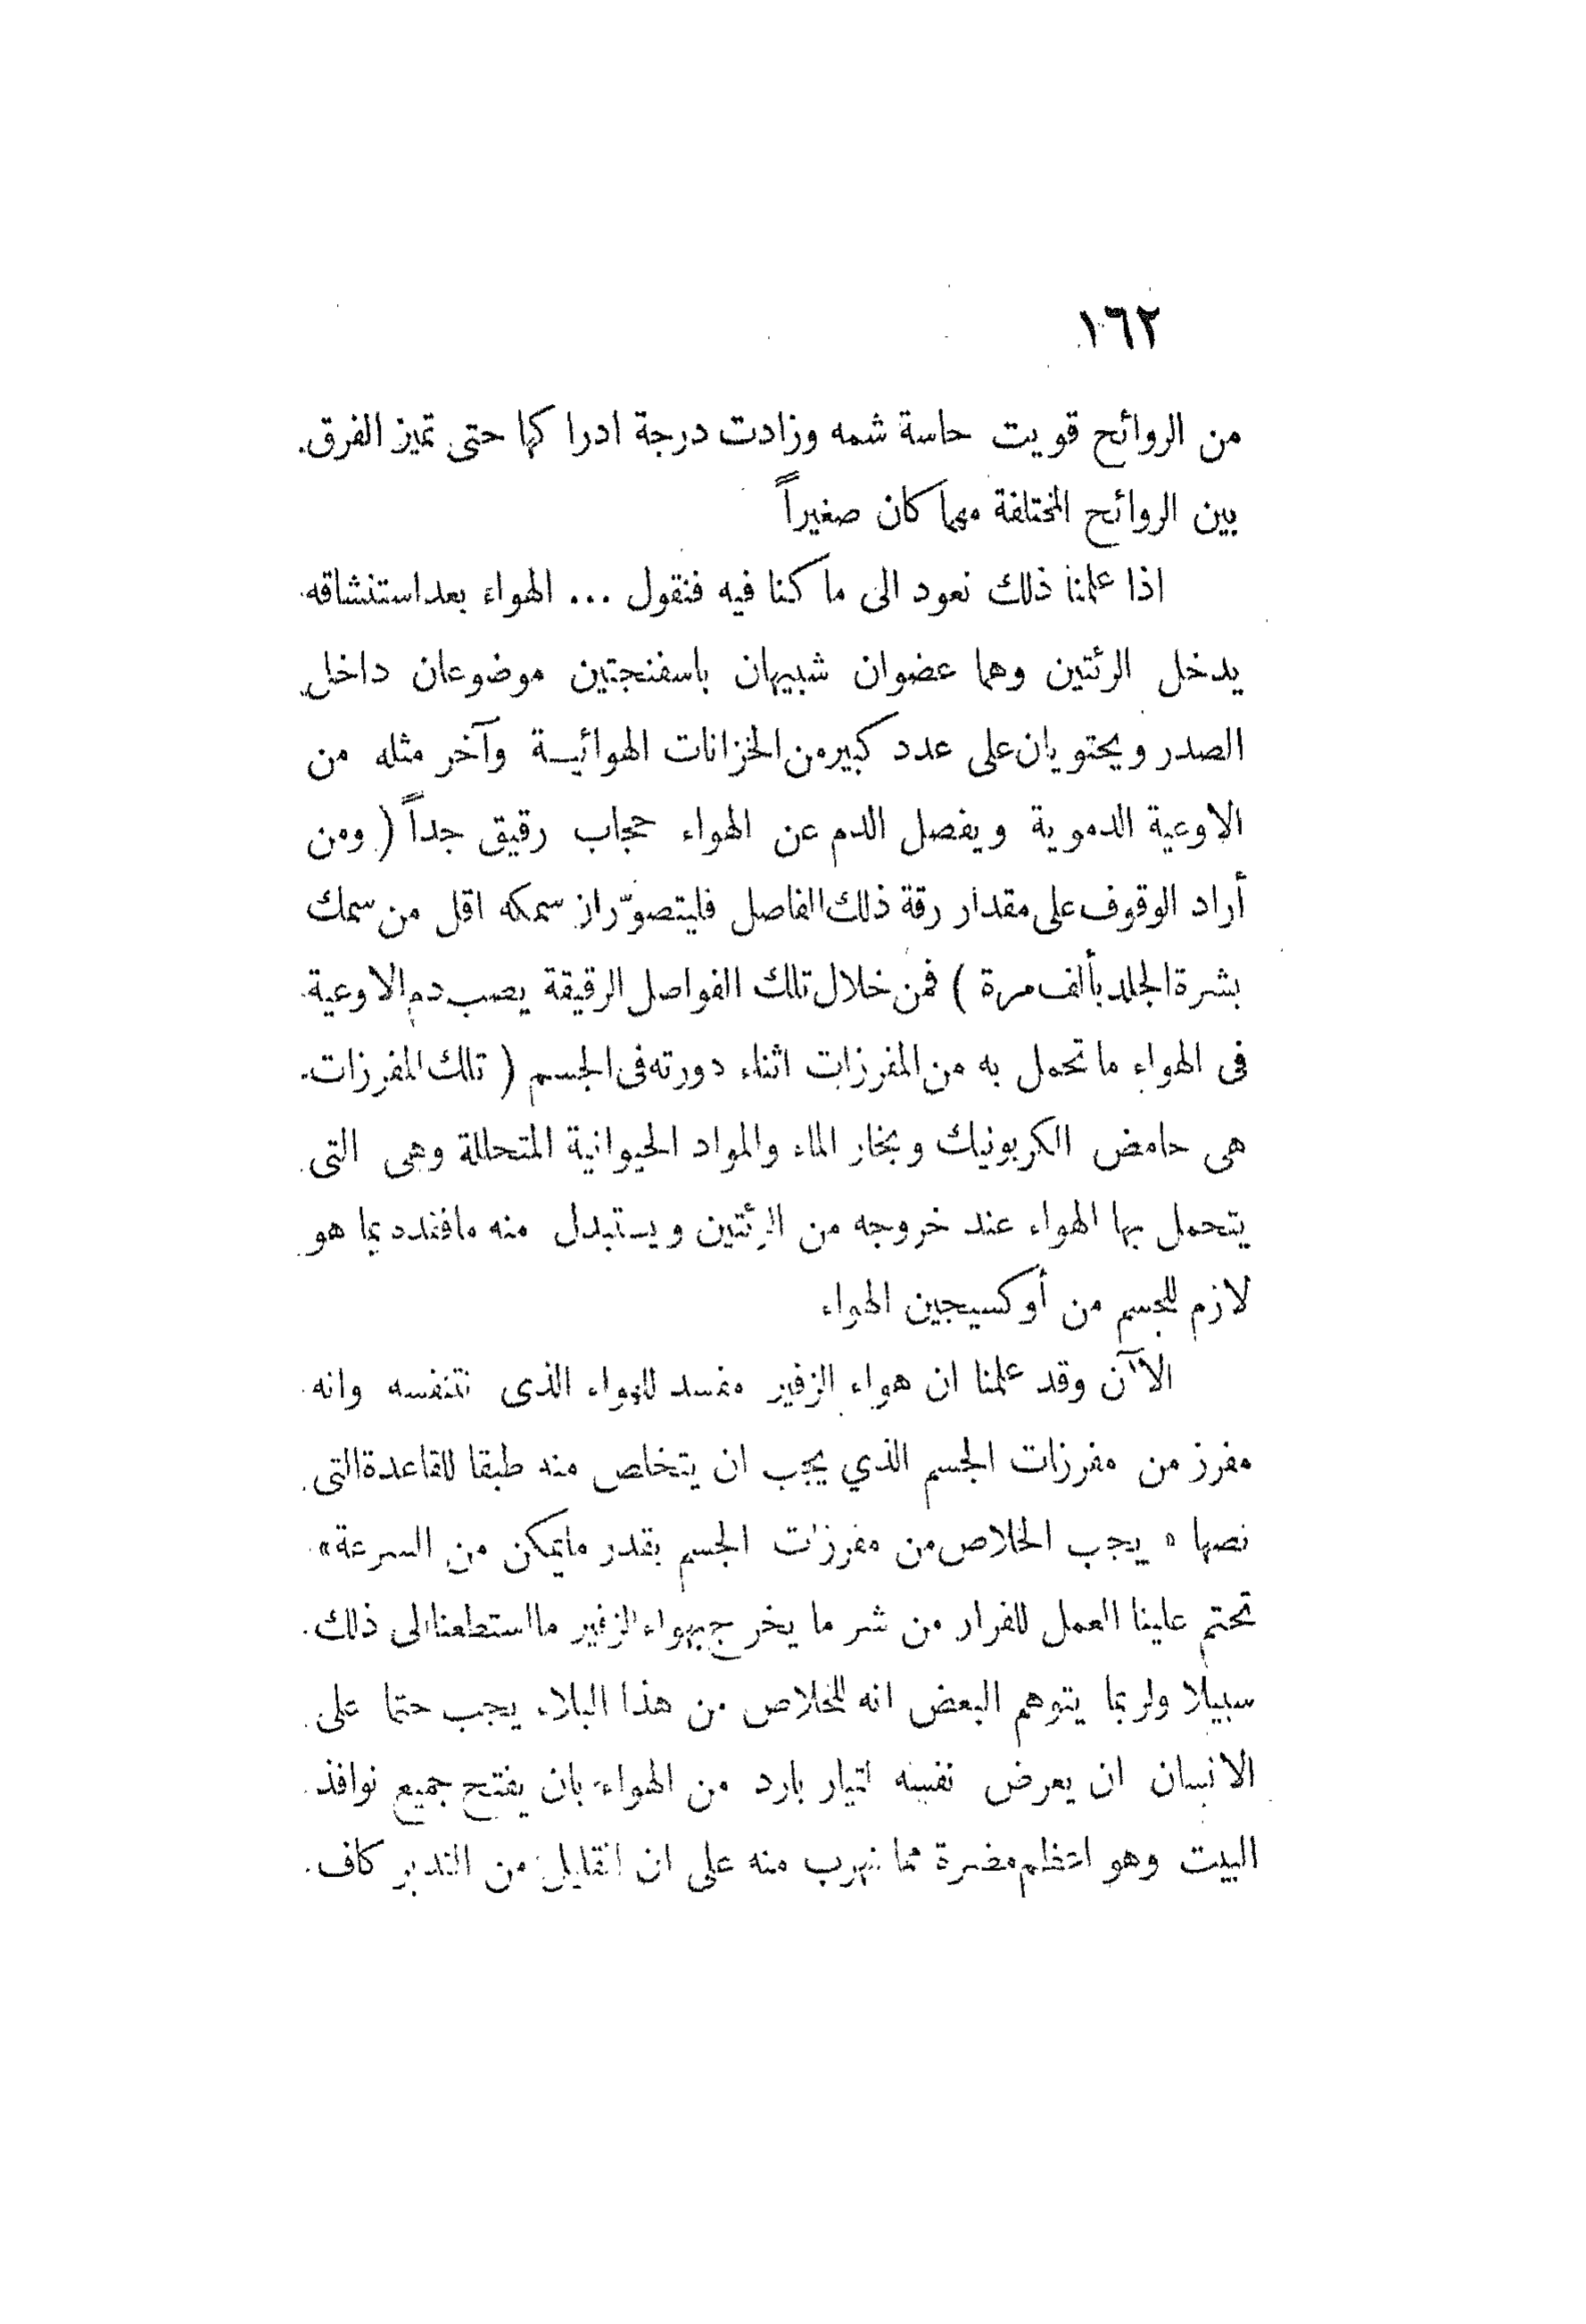 ١٦٢
من الروائح قويت حاسة شمه وزادت درجة ادراكها حتى تميز الفرق
بين الروائح المختلفة مهما كان صغيراً
اذا علمنا ذلك نعود الى ما كنا فيه فنقول ... الهواء بعد استنشاقه
يدخل الرئتين وهما عضوان شبيهان باسفنجتين موضوعان داخل
الصدر ويحتويان على عدد كبير من الخزانات الهوائية وآخر مثله من
الاوعية الدموية ويفصل الدم عن الهواء حجاب رقيق جداً ( ومن
أراد الوقوف على مقدار رقة ذلك الفاصل فليتصوّر ان سمكه اقل من سمك
بشرة الجلد بألف مرة ) فمن خلال تلك الفواصل الرقيقة يصب دم الاوعية
فى الهواء ما تحمل به من المفرزات اثناء دورته فى الجسم ( تلك المفرزات
هى حامض الكربونيك وبخار الماء والمواد الحيوانية المتحللة وهى التى
يتحمل بها الهواء عند خروجه من الرئتين ويستبدل منه ما فقده بما هو
لازم للجسم من أوكسيجين الهواء
الاآن وقد علمنا ان هواء الزفير مفسد للهواء الذى نتنفسه وانه
مفرز من مفرزات الجسم الذي يجب ان يتخلص منه طبقا للقاعدة التى
نصها « يجب الخلاص من مفرزات الجسم بقدر مايمكن من السرعة »
تحتم علينا العمل للفرار من شر ما يخرج بهواء الزفير ما استطعنا الى ذلك
سبيلا ولربما يتوهم البعض انه للخلاص من هذا البلاء يجب حتما على
الانسان ان يعرض نفسه لتيار بارد من الهواء بان يفتح جميع نوافذ
البيت وهو اعظم مضرة مما نهرب منه على ان القليل من التدبر كاف